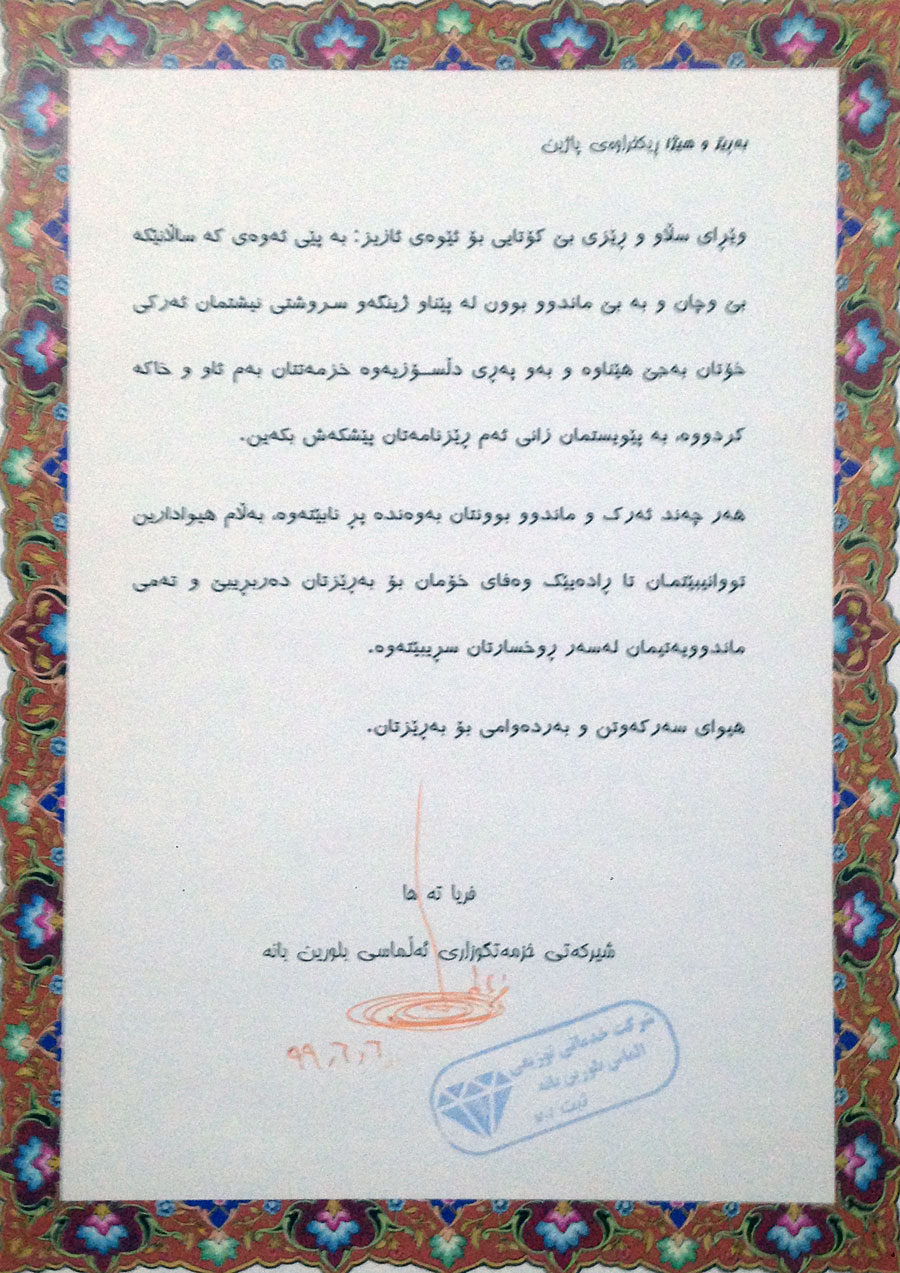 بەڕێز و هێژا ڕێکخراوەی پاژین
وێڕای سڵاو و ڕێزی بێ کۆتایی بۆ ئێوەی ئازیز: بە پێی ئەوەی کە ساڵانێکە
بێ وچان و بە بێ ماندوو بوون لە پێناو ژینگەو سروشتی نیشتمان ئەرکی
خۆتان بەجێ هێناوە و بەو پەڕی دڵسۆزیەوە خزمەتتان بەم ئاو و خاکە
کردووە، بە پێویستمان زانی ئەم ڕێزنامەتان پێشکەش بکەین.
هەر چەند ئەرک و ماندوو بوونتان بەوەندە پڕ نابێتەوە، بەڵام هیوادارین
تووانیبێتمان تا ڕادەیێک وەفای خۆمان بۆ بەڕێزتان دەربڕیبێ و تەمی
ماندوویەتیمان لەسەر ڕوخسارتان سڕیبێتەوە.
هیوای سەرکەوتن و بەردەوامی بۆ بەڕێزتان.
فریا تە ها
شیرکەتی خزمەتگوزاری ئەڵماسی بلورین بانە
۹۹٫٦٫٦
شرکت خدماتی توزیعی
الماس بلورین بانه
ثبت